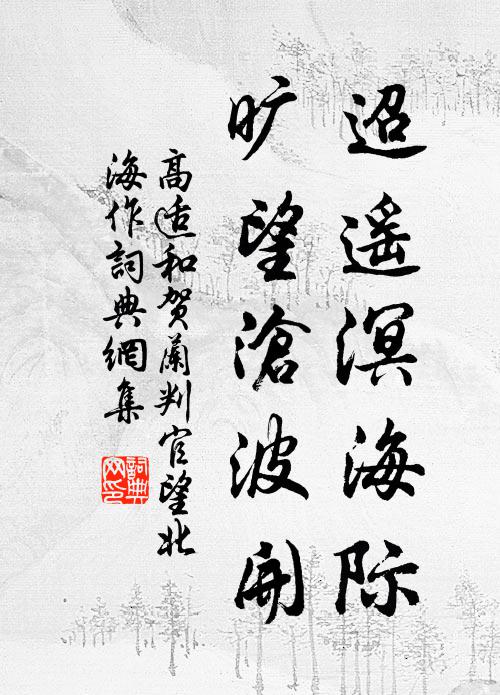 迢遥溟海际
旷望滄波开
高适和贺蘭判官望北
海作詞典網集
詞典
网印